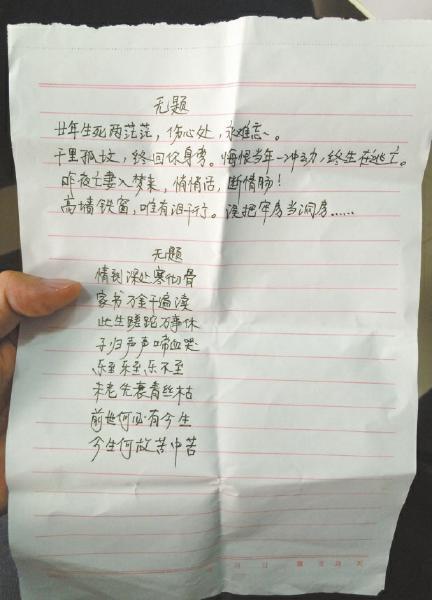 无题
廿年生死两茫茫，伤心处，永难忘。
千里孤坟，终回你身旁。悔恨当年一冲动，终生在逃亡。
昨夜亡妻入梦来，悄悄话，断情肠！
高墙铁窗，唯有泪千行。误把牢房当洞房……
无题
情到深处寒彻骨
家书万金千遍读
此生蹉跎万事休
子归声声啼血哭
乐至乐至乐不至
未老先衰青丝枯
前世何必有今生
今生何故苦中苦